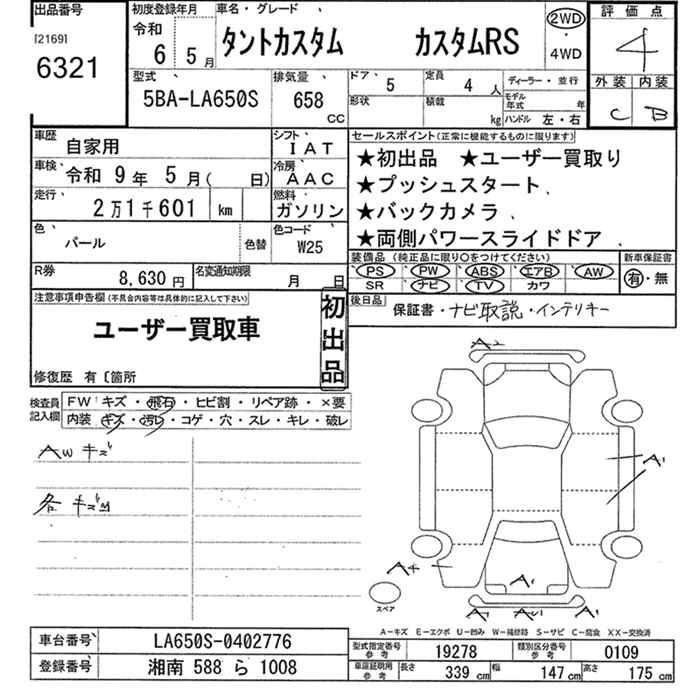 出品番号 初度登録年月 車名・グレード 2WD 評価点
[2169] 令和 4WD 4
6321 6 5月 タントカスタム カスタムRS
型式 排気量 ドア 5 定員 4人 ディーラー・並行 外装 内装
5BA-LA650S 658 CC 形状 積載 kg モデル年式 年 C B
ハンドル 左・右
車歴 自家用 シフト IAT セールスポイント(正常に機能するものに限ります)
車検 令和 9年 5月( 日) 冷房 AAC ★初出品 ★ユーザー買取り
走行 2万1千601 km 燃料 ガソリン ★プッシュスタート
★バックカメラ
色 パール 色替 色コード W25 ★両側パワースライドドア
装備品 (純正品に限り○をつけてください) 新車保証書
R券 8,630円 名変通知期限 月 日 PS PW ABS エアB AW 有・無
SR ナビ TV カワ
注意事項申告欄(不具合内容等は具体的に記入して下さい) 初出品 後日品 保証書・ナビ取説・インテリキー
ユーザー買取車
修復歴 有〔箇所
検査員記入欄 FW キズ・飛石・ヒビ割・リペア跡・×要
内装 キズ・汚レ・コゲ・穴・スレ・キレ・破レ
A2
AWキズ
A1
各キズ凹
A4
A1
スペア
A1 AU1 A1
A-キズ E-エクボ U-凹み W-補修跡 S-サビ C-腐食 XX-交換済
車台番号 LA650S-0402776 型式指定番号 参考 19278 類別区分番号 参考 0109
登録番号 湘南 588 ら 1008 車庫証明用 参考 長さ 339cm 幅 147cm 高さ 175cm